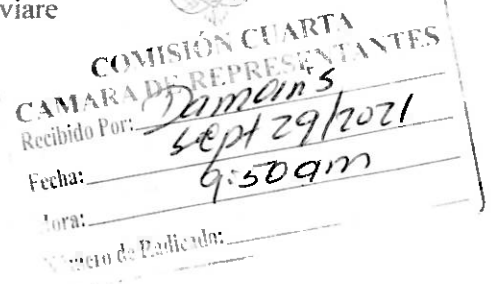 viare
COMISIÓN CUARTA
CAMARA DE REPRESENTANTES
Recibido Por: Damaris
Fecha: sept 29/2021
Hora: 9:50am
Número de Radicado: